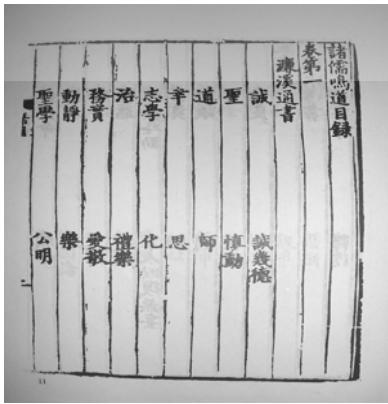 諸儒鳴道目録
卷第一
濂溪通書
誠 誠幾德
聖 慎動
道 師
幸 思
志學 化
治 禮樂
務實 愛敬
動靜 樂
聖學 公明